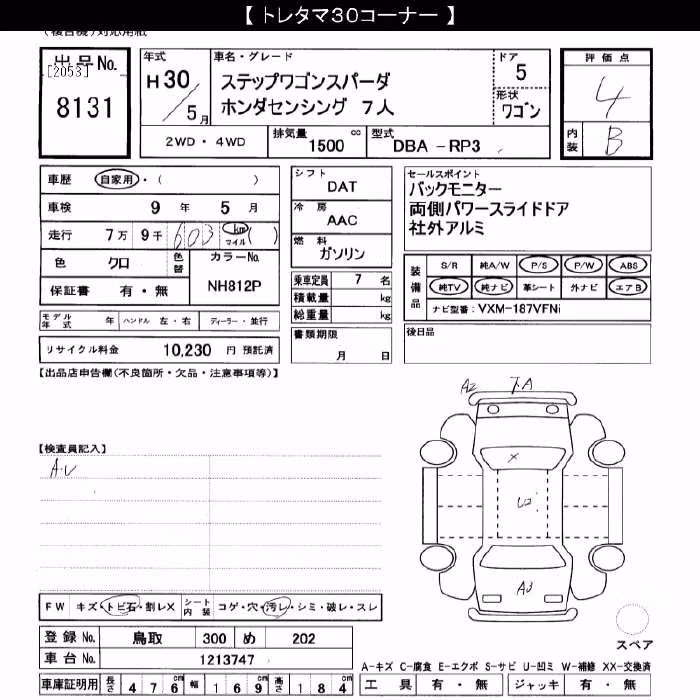 【 トレタマ30コーナー 】
(複合機)対応用紙
出品No.
[2053]
8131
年式
H30/5月
車名・グレード
ステップワゴンスパーダ
ホンダセンシング 7人
ドア
5
形状
ワゴン
評価点
4
内装
B
2WD・4WD
排気量
1500 cc
型式
DBA -RP3
車歴 自家用・( )
車検 9年 5月
走行 7万 9千 603 km マイル ( )
色 クロ
色替
カラーNo.
NH812P
保証書 有・無
モデル年式 年 ハンドル 左・右 ディーラー・並行
リサイクル料金 10,230 円 預託済
シフト
DAT
冷房
AAC
燃料
ガソリン
乗車定員 7 名
積載量 kg
総重量 kg
書類期限
月 日
セールスポイント
バックモニター
両側パワースライドドア
社外アルミ
装備品
S/R 純A/W P/S P/W ABS
純TV 純ナビ 革シート 外ナビ エアB
ナビ型番: VXM-187VFNi
後日品
【出品店申告欄(不良箇所・欠品・注意事項等)】
【検査員記入】
A.U
A2
下A
X
A3
FW キズ・トビ石・割レX シート内装 コゲ・穴・汚レ・シミ・破レ・スレ
登録No. 鳥取 300 め 202
車台No. 1213747
車庫証明用 長さ 476cm 幅 169cm 高さ 184cm
スペア
A-キズ C-腐食 E-エクボ S-サビ U-凹ミ W-補修 XX-交換済
工具 有・無 ジャッキ 有・無